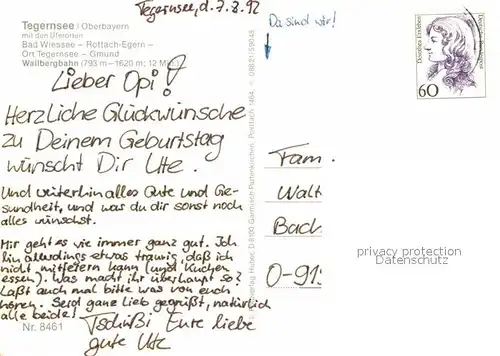 Tegernsee, d. 7.8.92
Da sind wir!
Tegernsee / Oberbayern
mit den Uferorten
Bad Wiessee – Rottach-Egern –
Ort Tegernsee – Gmund
Wallbergbahn (793 m – 1620 m; 12 Min.)
Lieber Opi!
Herzliche Glückwünsche
zu Deinem Geburtstag
wünscht Dir Ute.
Und weiterhin alles Gute und Ge-
sundheit, und was du dir sonst noch
alles wünschst.
Mir geht es wie immer ganz gut. Ich
bin allerdings etwas traurig, daß ich
nicht mitfeiern kann (und Kuchen
essen). Was macht ihr überhaupt so?
Laßt auch mal bitte was von euch
hören. Seid ganz lieb gegrüßt, natürlich
alle beide!
Tschüßi Eure liebe
gute Ute
Nr. 8461
Huber, D 8100 Garmisch-Partenkirchen, Postfach 1454
Fam.
Walt
Bach
O-915
60
Dorothea Erxleben
Deutsche Bundespost
privacy protection
Datenschutz